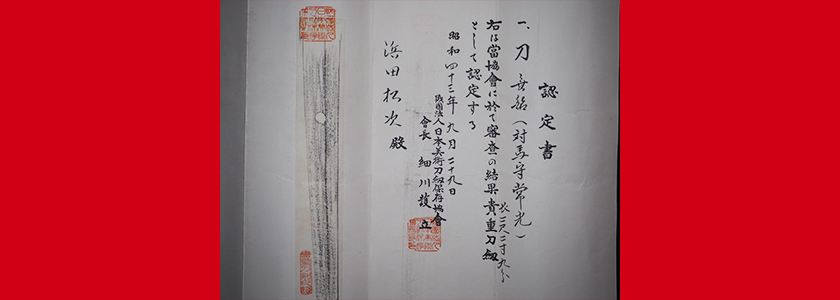 認定書
一、刀 無銘(対馬守常光)
長二尺二寸九分
右は當協會に於て審査の結果貴重刀剱
として認定する
昭和四十三年九月二十九日
財団法人日本美術刀剱保存協會
會長 細川護立
浜田松次殿